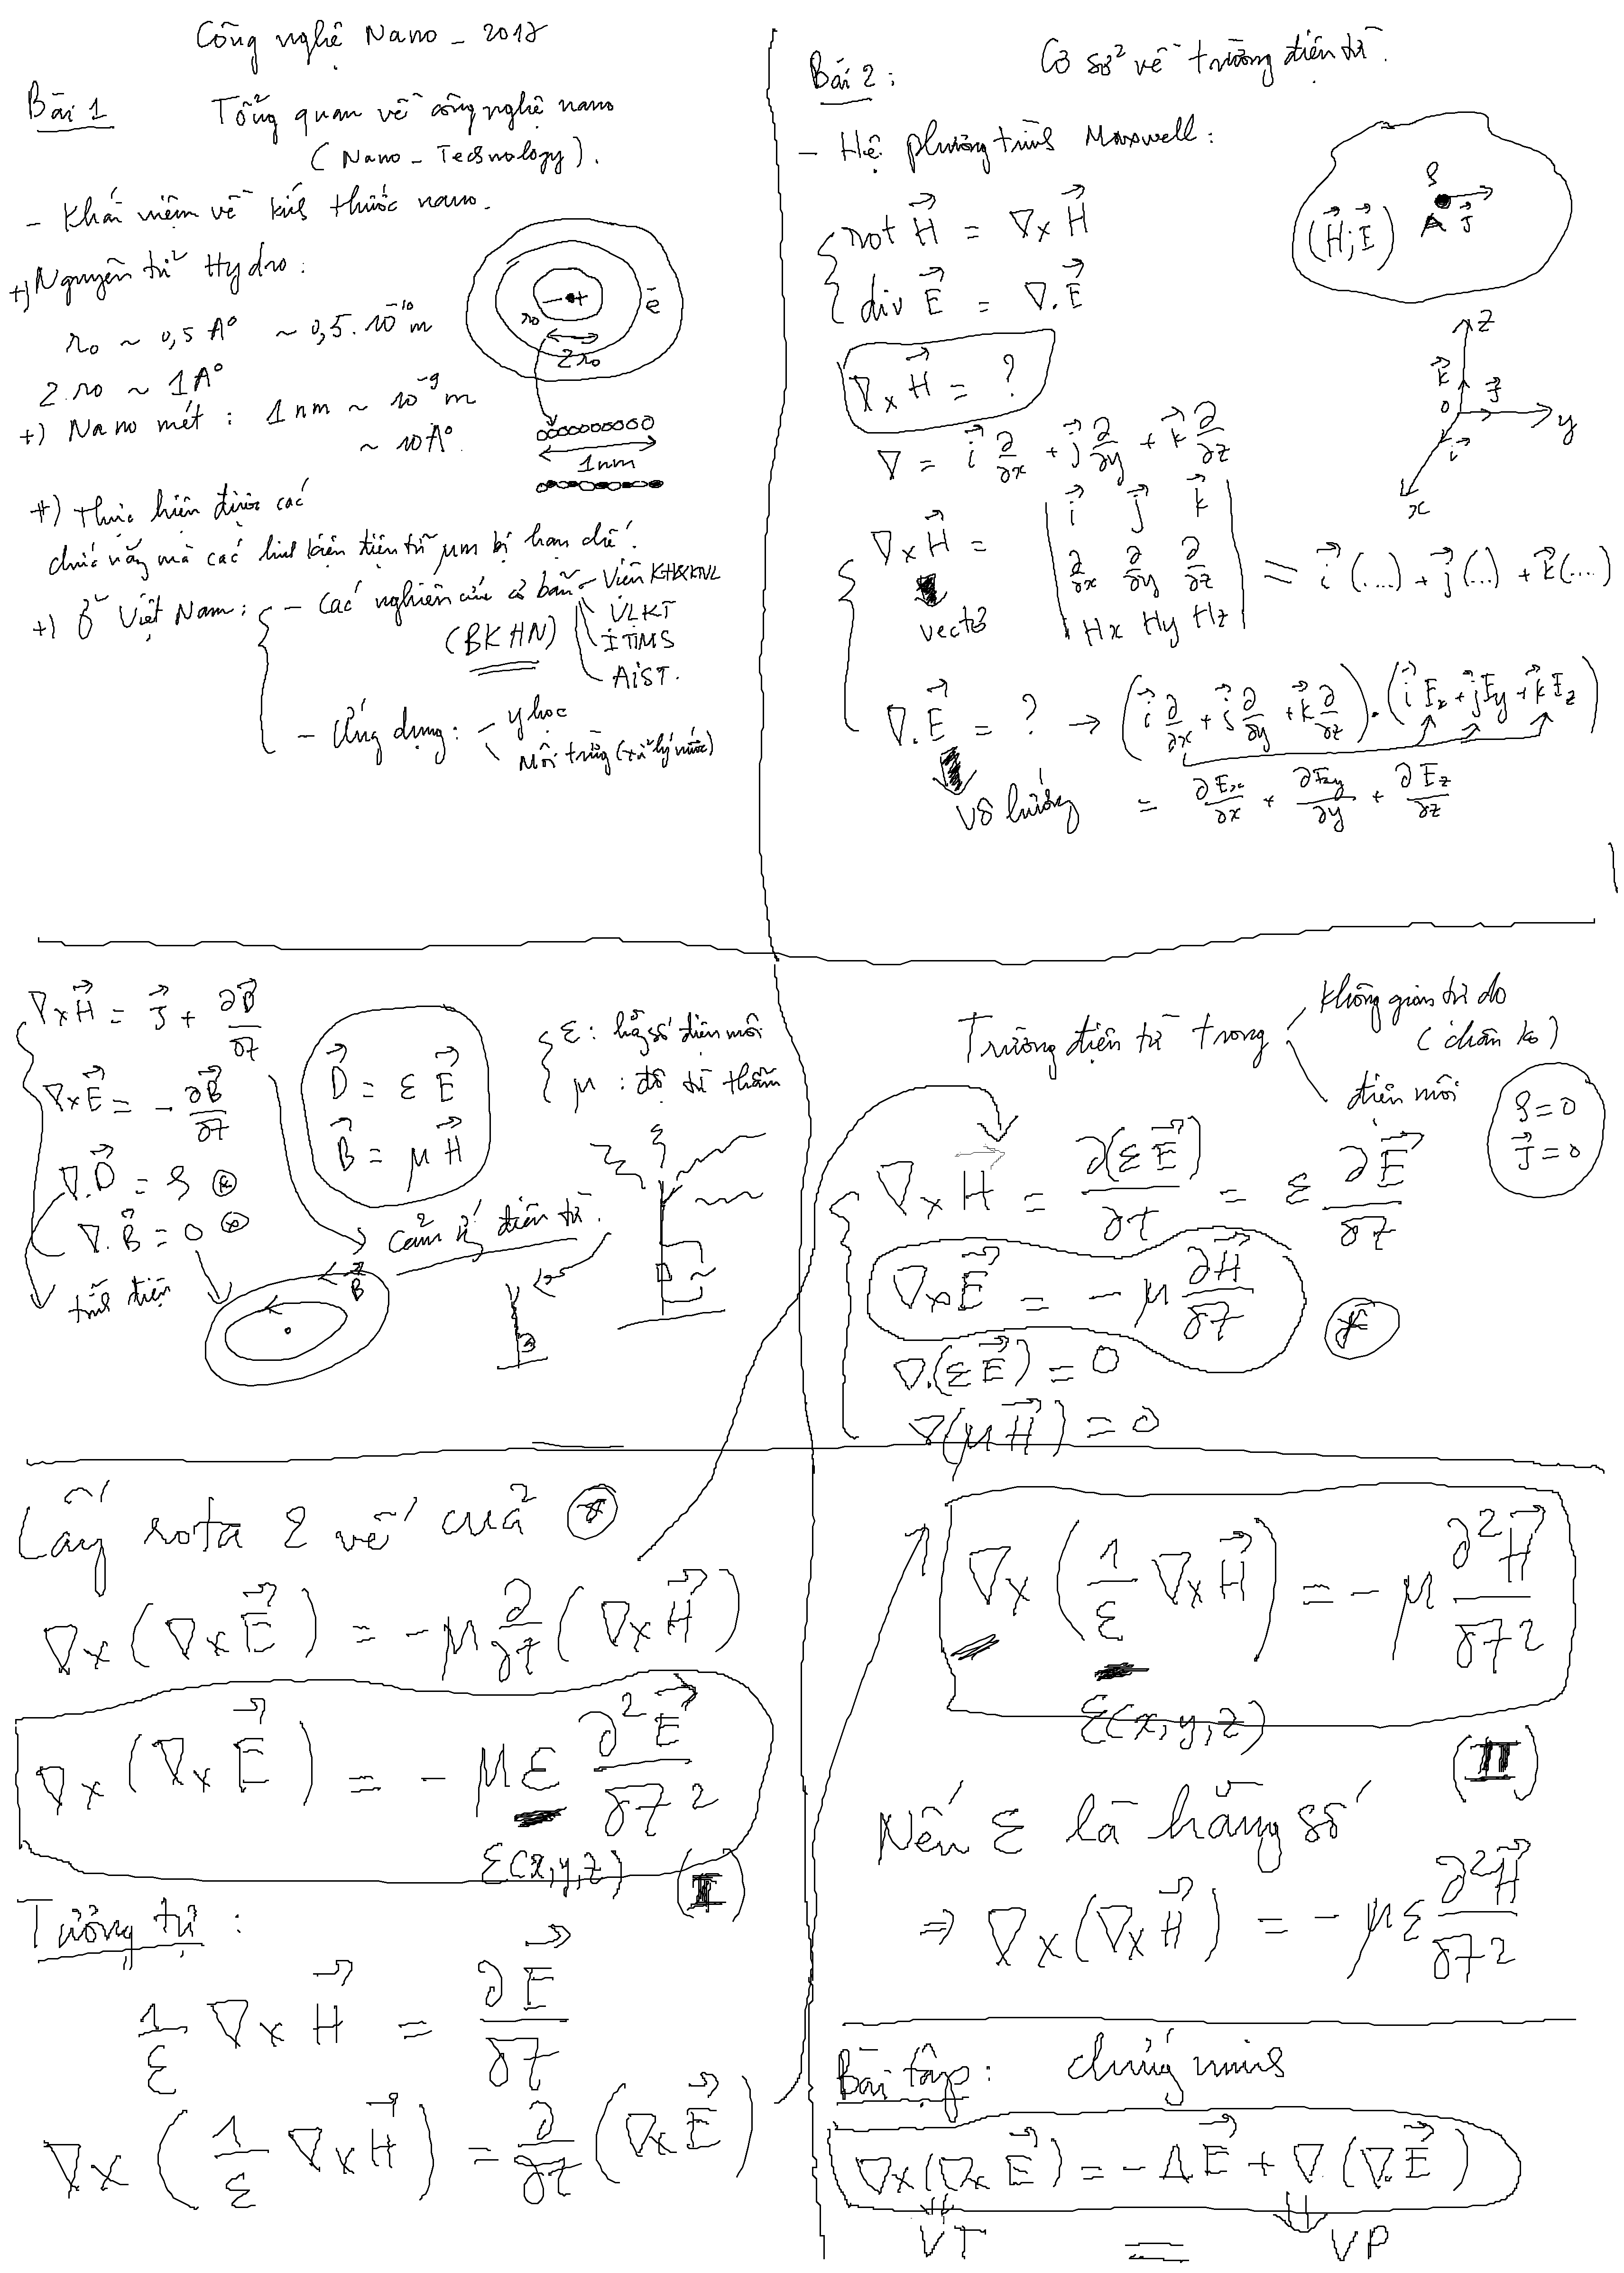 Công nghệ Nano - 2017
Bài 1 Tổng quan về công nghệ nano
(Nano - Technology).
- Khái niệm về kích thước nano.
+) Nguyên tử Hydro:
r₀ ~ 0,5 A° ~ 0,5.10⁻¹⁰ m
2.r₀ ~ 1A°
+) Nano mét: 1nm ~ 10⁻⁹ m
~ 10A°.
r₀ ē
2r₀
1nm
+) Thực hiện được các
chức năng mà các linh kiện điện tử μm bị hạn chế.
+) Ở Việt Nam: - Các nghiên cứu cơ bản - Viện
(BKHN) VLKT
ITIMS
AIST.
- Ứng dụng: - y học
Môi trường (xử lý nước)
Bài 2: Cơ sở về trường điện từ.
- Hệ phương trình Maxwell:
rot H⃗ = ∇×H⃗
div E⃗ = ∇.E⃗
(H⃗;E⃗) ρ A J⃗
∇×H⃗ = ?
z k⃗ j⃗ o y i⃗ x
∇ = i⃗ ∂/∂x + j⃗ ∂/∂y + k⃗ ∂/∂z
∇×H⃗ = | i⃗ j⃗ k⃗ ; ∂/∂x ∂/∂y ∂/∂z ; Hx Hy Hz | = i⃗(...) + j⃗(...) + k⃗(...)
vectơ
∇.E⃗ = ? → (i⃗ ∂/∂x + j⃗ ∂/∂y + k⃗ ∂/∂z).(i⃗Ex + j⃗Ey + k⃗Ez)
Vô hướng = ∂Ex/∂x + ∂Ey/∂y + ∂Ez/∂z
∇×H⃗ = J⃗ + ∂D⃗/∂t
∇×E⃗ = - ∂B⃗/∂t
∇.D⃗ = ρ ⊗
∇.B⃗ = 0 ⊗
tĩnh điện
D⃗ = ε E⃗
B⃗ = μ H⃗
ε: hằng số điện môi
μ: độ từ thẩm
Cảm ứng điện từ.
B⃗
Trường điện từ trong không gian tự do
(chân ko)
điện môi
ρ=0
J⃗=0
∇×H⃗ = ∂(εE⃗)/∂t = ε ∂E⃗/∂t
∇×E⃗ = -μ ∂H⃗/∂t (*)
∇.(εE⃗) = 0
∇(μH⃗) = 0
Lấy rota 2 vế của (*)
∇×(∇×E⃗) = -μ ∂/∂t (∇×H⃗)
∇×(∇×E⃗) = -με ∂²E⃗/∂t²
ε(x,y,z) (I)
Tương tự:
1/ε ∇×H⃗ = ∂E⃗/∂t
∇×(1/ε ∇×H⃗) = ∂/∂t (∇×E⃗)
∇×(1/ε ∇×H⃗) = -μ ∂²H⃗/∂t²
ε(x,y,z)
(II)
Nếu ε là hằng số
⇒ ∇×(∇×H⃗) = -με ∂²H⃗/∂t²
Bài tập: chứng minh
∇×(∇×E⃗) = -ΔE⃗ + ∇.(∇.E⃗)
VT = VP